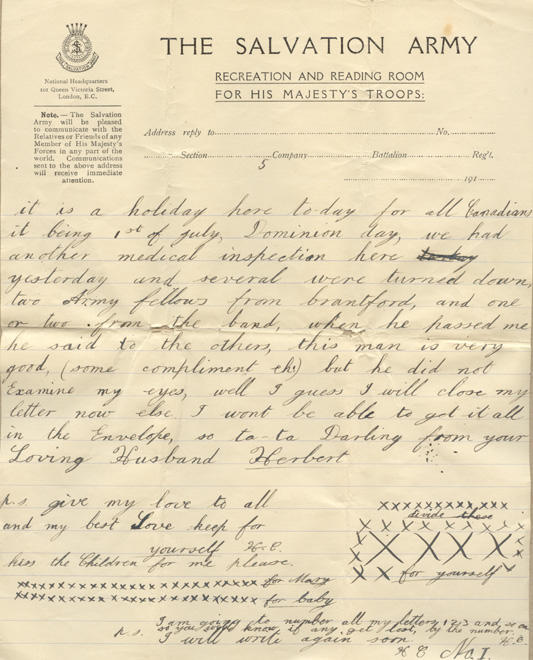 THE SALVATION ARMY
RECREATION AND READING ROOM
FOR HIS MAJESTY'S TROOPS:
THE SALVATION ARMY
National Headquarters
101 Queen Victoria Street,
London, E.C.
Note. — The Salvation
Army will be pleased
to communicate with the
Relatives or Friends of any
Member of His Majesty's
Forces in any part of the
world. Communications
sent to the above address
will receive immediate
attention.
Address reply to No.
Section Company Battalion Reg't.
5
191
it is a holiday here to-day for all Canadians
it being 1st of July, Dominion day, we had
another medical inspection here to-day
yesterday and several were turned down,
two Army fellows from brantford, and one
or two from the band, when he passed me
he said to the others, this man is very
good, (some compliment eh) but he did not
Examine my eyes, well I guess I will close my
letter now else I wont be able to get it all
in the Envelope, so ta-ta Darling from your
Loving Husband Herbert
p.s. give my love to all
and my best Love keep for
yourself H.C.
kiss the Children for me please.
xxxxxxxxxxxxxxxxxxx for Mary
xxxxxxxxxxxxxxxxxxx for baby
xxxxxxxxxxxx
divide these
xxxxxxxxxx
xXXXXXx
xx for yourself x
I am going to number all my letters 1 2 3 and so on
so you will know if any get lost, by the number.
p.s. I will write again soon. H.C.
H C No I.